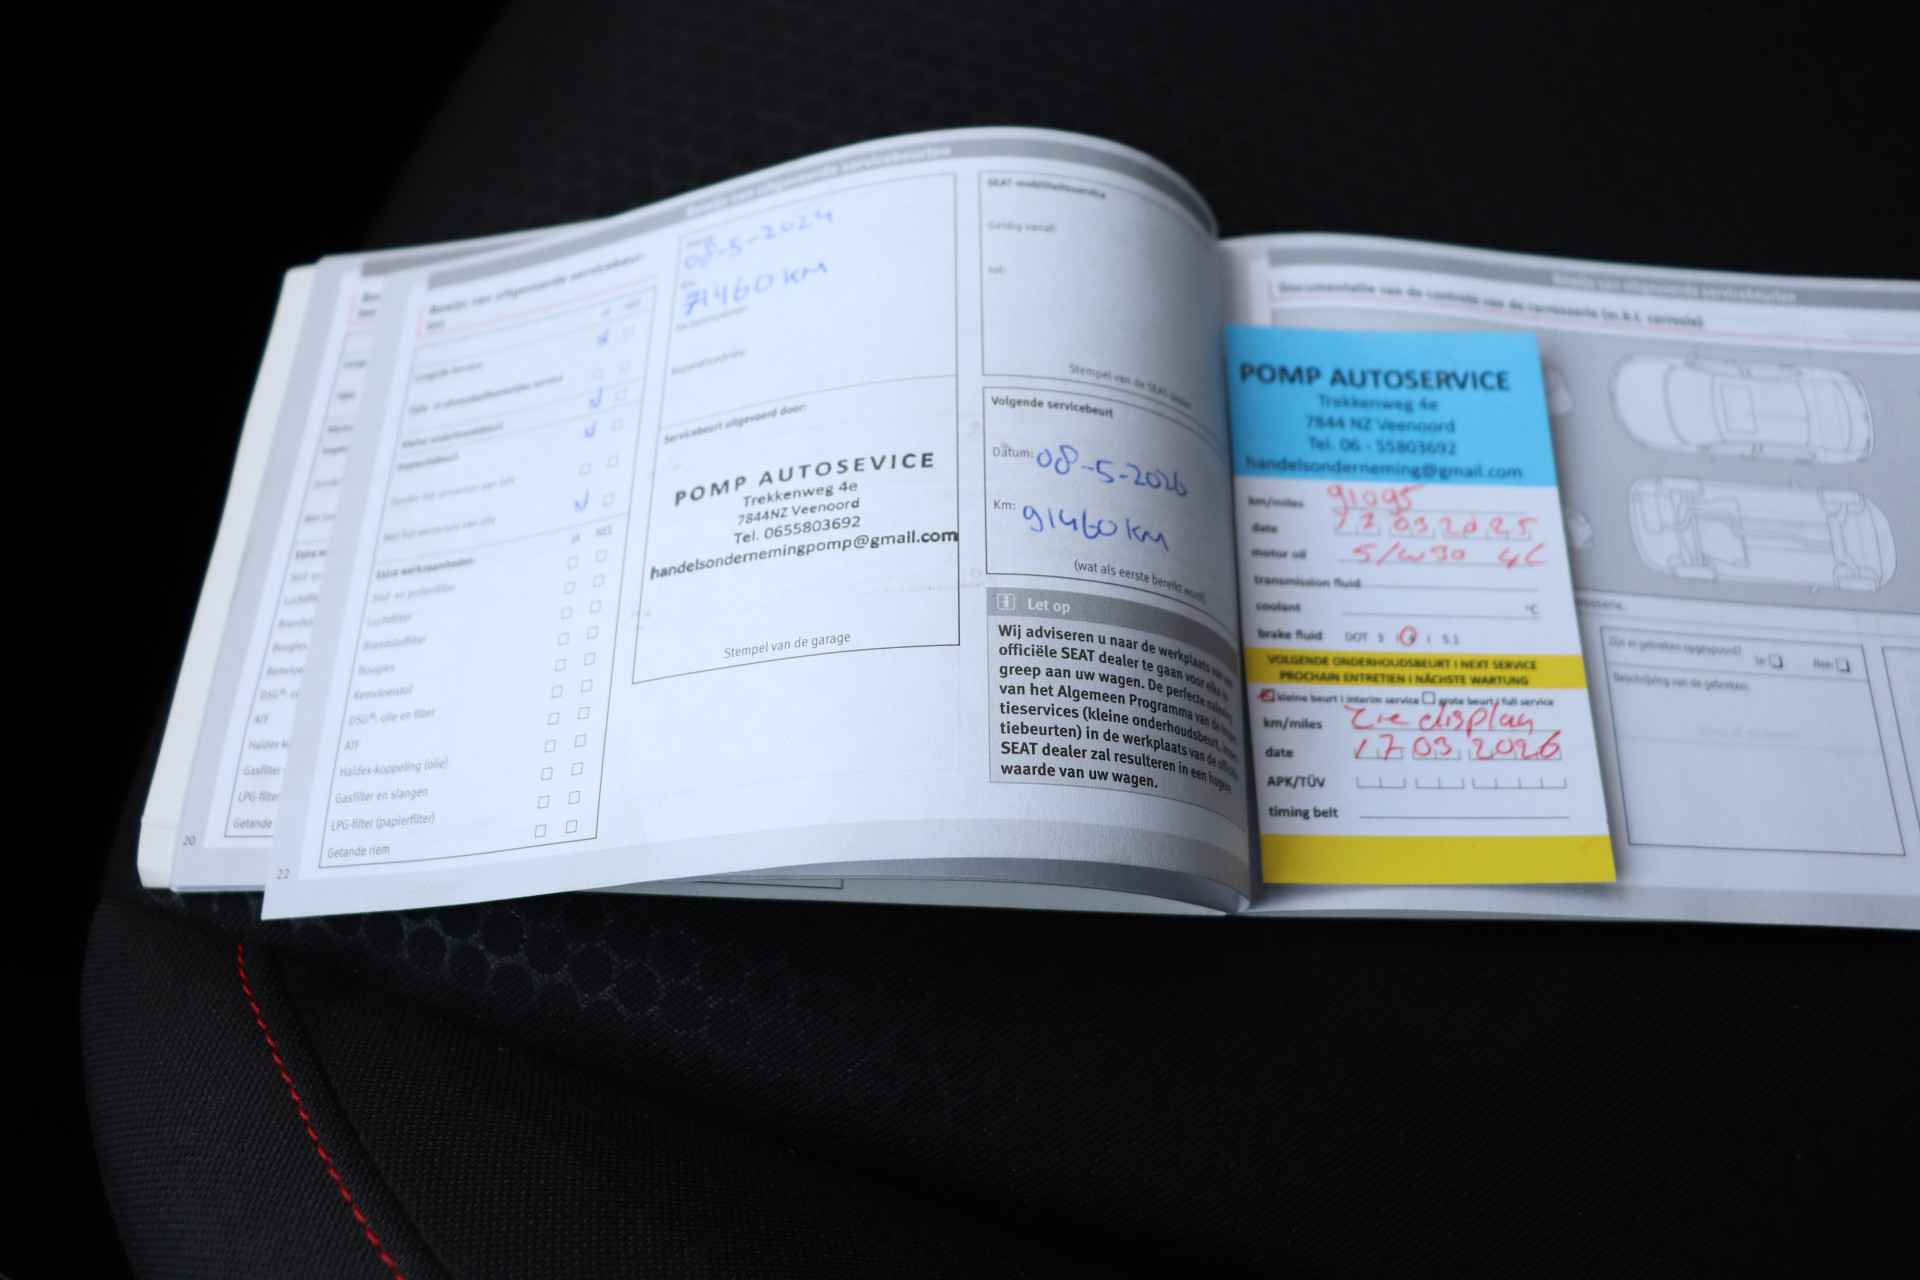 Bewijs van uitgevoerde servicebeurten
Bewijs van uitgevoerde servicebeurt
JA NEE
Longlife-service
Tijds- en afstandsafhankelijke service
Kleine onderhoudsbeurt
Inspectiebeurt
JA NEE
Extra werkzaamheden
Stof- en pollenfilter
Luchtfilter
Brandstoffilter
Bougies
Remvloeistof
DSG®: olie en filter
ATF
Haldex-koppeling (olie)
Gasfilter en slangen
LPG-filter (papierfilter)
Getande riem
20
22
08-5-2024
71460 KM
Servicebeurt uitgevoerd door:
POMP AUTOSEVICE
Trekkenweg 4e
7844NZ Veenoord
Tel. 0655803692
handelsondernemingpomp@gmail.com
Stempel van de garage
SEAT-mobiliteitsservice
Geldig vanaf:
tot:
Stempel van de SEAT-dealer
Volgende servicebeurt
Datum: 08-5-2026
Km: 91460 KM
(wat als eerste bereikt wordt)
Let op
Wij adviseren u naar de werkplaats van een
officiële SEAT dealer te gaan voor elke in-
greep aan uw wagen. De perfecte naleving
van het Algemeen Programma van de
tieservices (kleine onderhoudsbeurt,
tiebeurten) in de werkplaats van de officiële
SEAT dealer zal resulteren in een hogere
waarde van uw wagen.
Bewijs van uitgevoerde servicebeurten
Documentatie van de controle van de carrosserie (m.b.t. corrosie)
POMP AUTOSERVICE
Trekkenweg 4e
7844 NZ Veenoord
Tel. 06 - 55803692
handelsonderneming@gmail.com
km/miles 91095
date 17 03 2025
motor oil 5/w30 4L
transmission fluid
coolant °C
brake fluid DOT 3 I 4 I 5.1
VOLGENDE ONDERHOUDSBEURT I NEXT SERVICE
PROCHAIN ENTRETIEN I NÄCHSTE WARTUNG
kleine beurt I interim service grote beurt I full service
km/miles Zie display
date 17 03 2026
APK/TÜV
timing belt
Zijn er gebreken opgespoord? Ja Nee
Beschrijving van de gebreken: